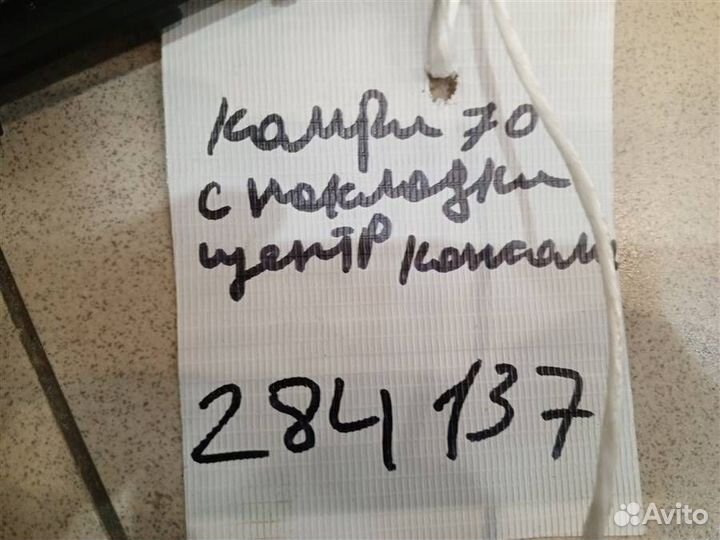 камри 70
с накладки
центр консоли
284 137
Avito